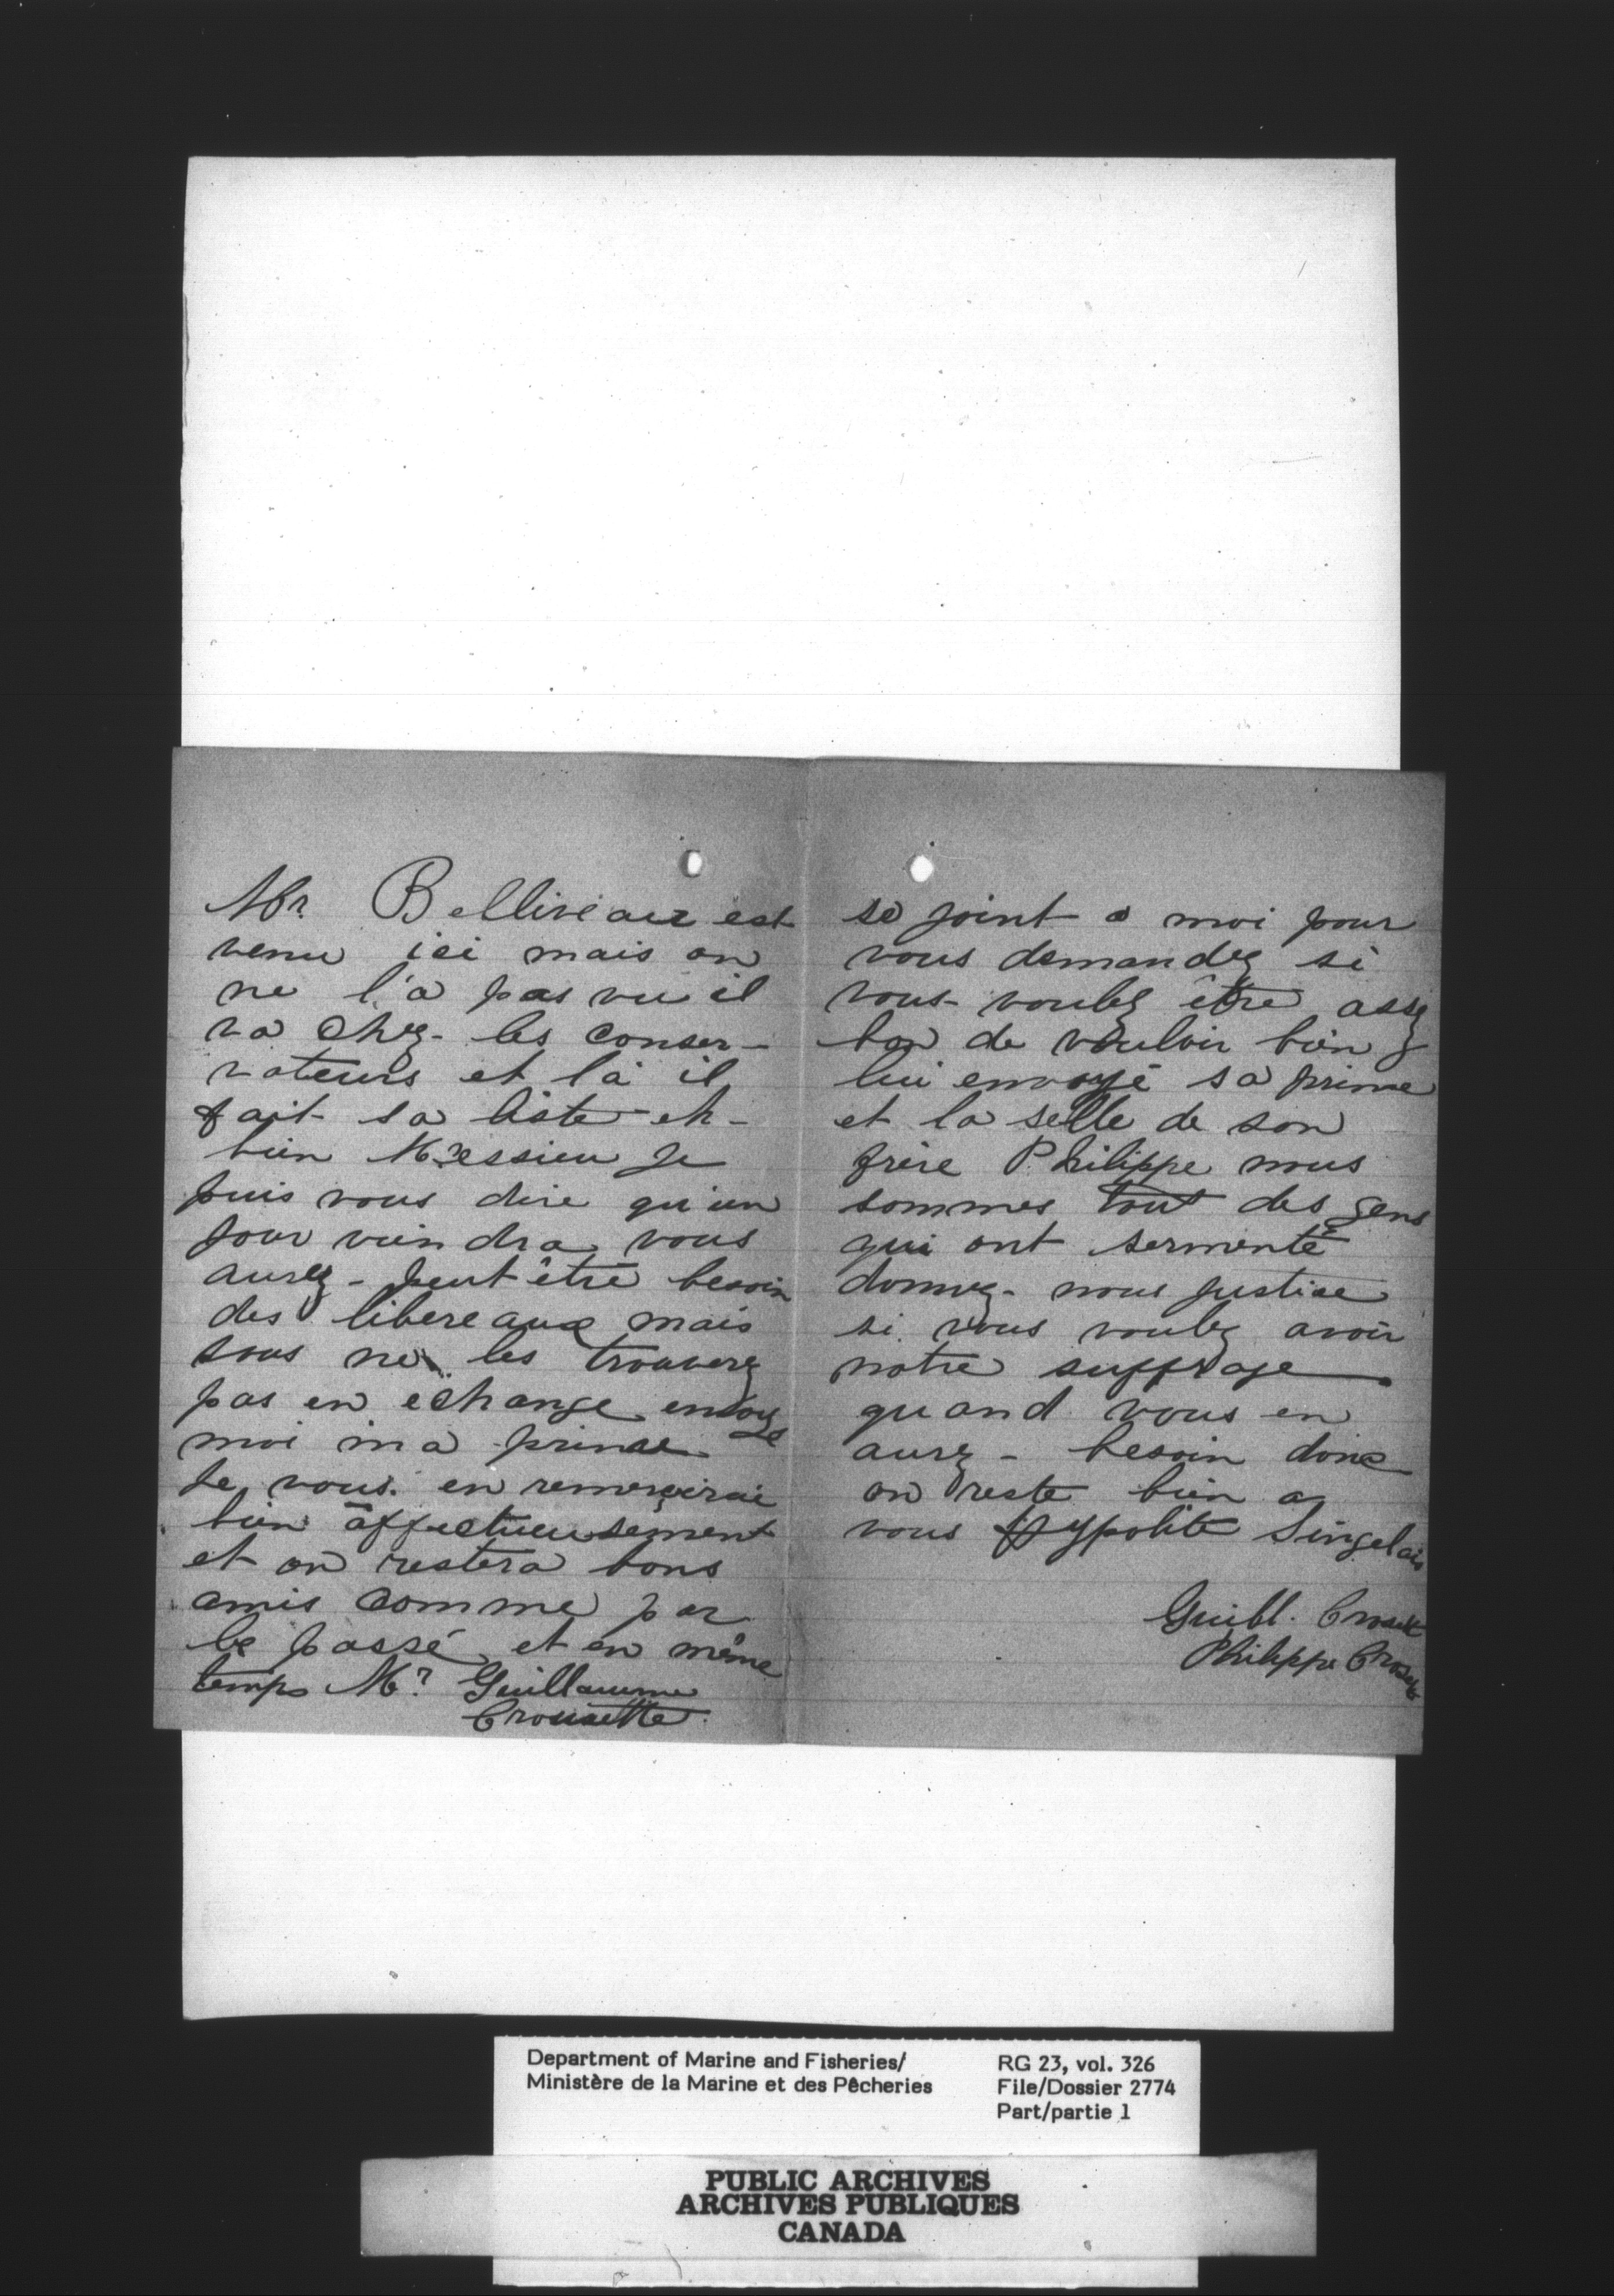 Mr. Belliveau est
venu ici mais on
ne l'a pas vu il
va chez les conser-
vateurs et là il
fait sa liste eh-
bien Messieu je
puis vous dire qu'un
jour viendra vous
aurez - peut être besoin
des libereaux mais
vous ne les trouverez
pas en echange envoye
moi ma prime
Je vous en remercirai
bien affectueusement
et on restera bons
amis comme par
le passé et en même
temps Mr Guillaume
Crousette
se joint a moi pour
vous demandez si
vous voulez être assez
bon de vouloir bien
lui envoyé sa prime
et la selle de son
frère Philippe nous
sommes tout des gens
qui ont sermenté
donnez - nous justice
si vous voulez avoir
notre suffrage
quand vous en
aurez - besoin donc
on reste bien a
vous Hypolite Singelais
Guill. Crousett
Philippe
Department of Marine and Fisheries/
Ministère de la Marine et des Pêcheries
RG 23, vol. 326
File/Dossier 2774
Part/partie 1
PUBLIC ARCHIVES
ARCHIVES PUBLIQUES
CANADA